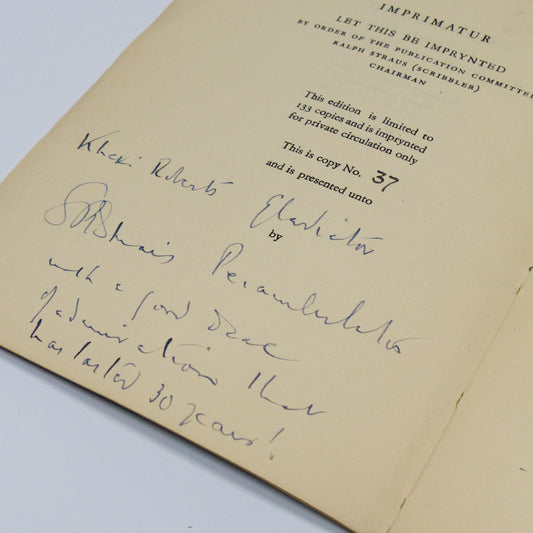 IMPRIMATUR
LET THIS BE IMPRYNTED
BY ORDER OF THE PUBLICATION COMMITTEE
RALPH STRAUS (SCRIBBLER)
CHAIRMAN
This edition is limited to
133 copies and is imprynted
for private circulation only
This is copy No. 37
and is presented unto
Khaki Roberts Gladiator
by
Perambulator
with a good deal
of admiration that
has lasted 30 years!